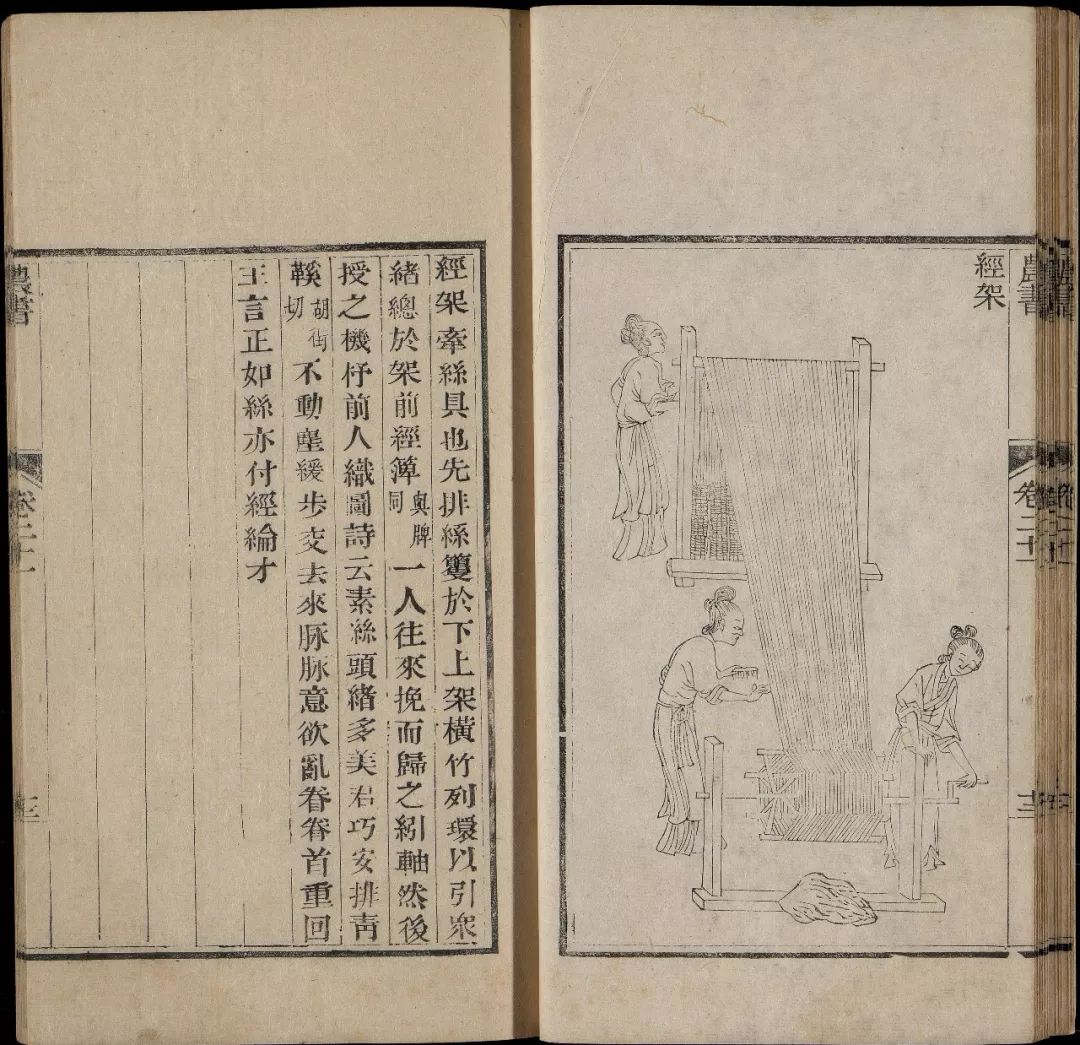 農書
卷二十
經架
經架牽絲具也先排絲籰於下上架橫竹列環以引眾
緒總於架前經簿與牌同一人往來挽而歸之紖軸然後
授之機杼前人織圖詩云素絲頭緒多美君巧安排青
鞵胡街切不動塵緩步交去來脉脉意欲亂眷眷首重回
王言正如絲亦付經綸才
農書